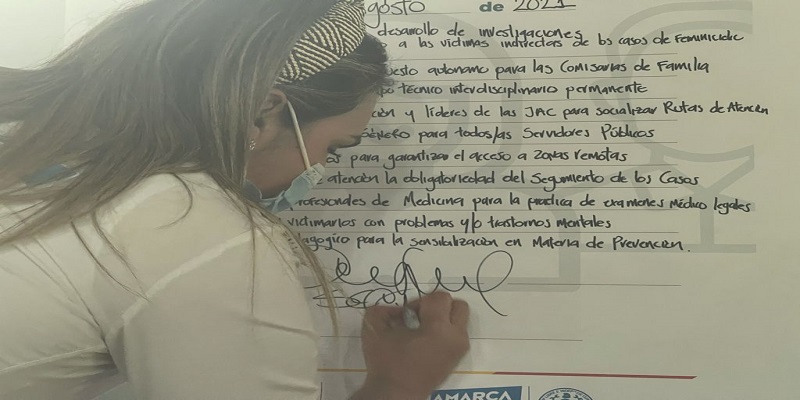 gosto de 2021
desarrollo de investigaciones
o a las víctimas indirectas de los casos de Feminicidio
uesto autonamo para las Comisarias de Familia
po técnico interdisciplinario permanente
ción y líderes de las JAC para socializar Rutas de Atención
GÉNERO para todos/as Servidores Públicos
os para garantizar el acceso a zonas remotas
e atención la obligatoriedad del Seguimiento de los Casos
rofesionales de Medicina para la practica de examenes Médico legales
victimarios con problemas y/o trastornos mentales
dagogico para la sensibilización en Materia de Prevención.
AMARCA